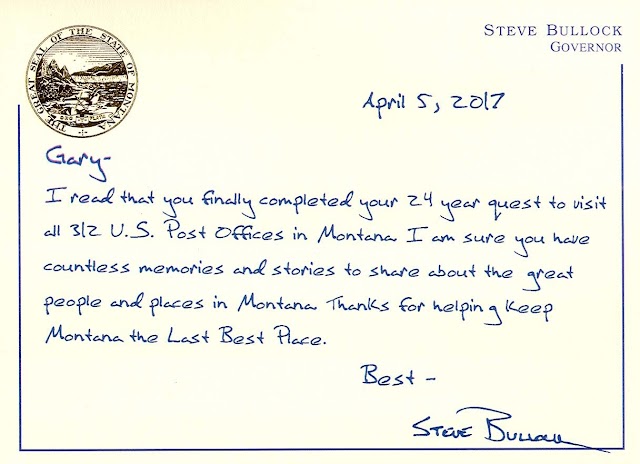 THE GREAT SEAL OF THE STATE OF MONTANA
ORO Y PLATA
STEVE BULLOCK
GOVERNOR
April 5, 2017
Gary-
I read that you finally completed your 24 year quest to visit
all 312 U.S. Post Offices in Montana I am sure you have
countless memories and stories to share about the great
people and places in Montana Thanks for helping keep
Montana the Last Best Place.
Best -
STEVE BULLOCK